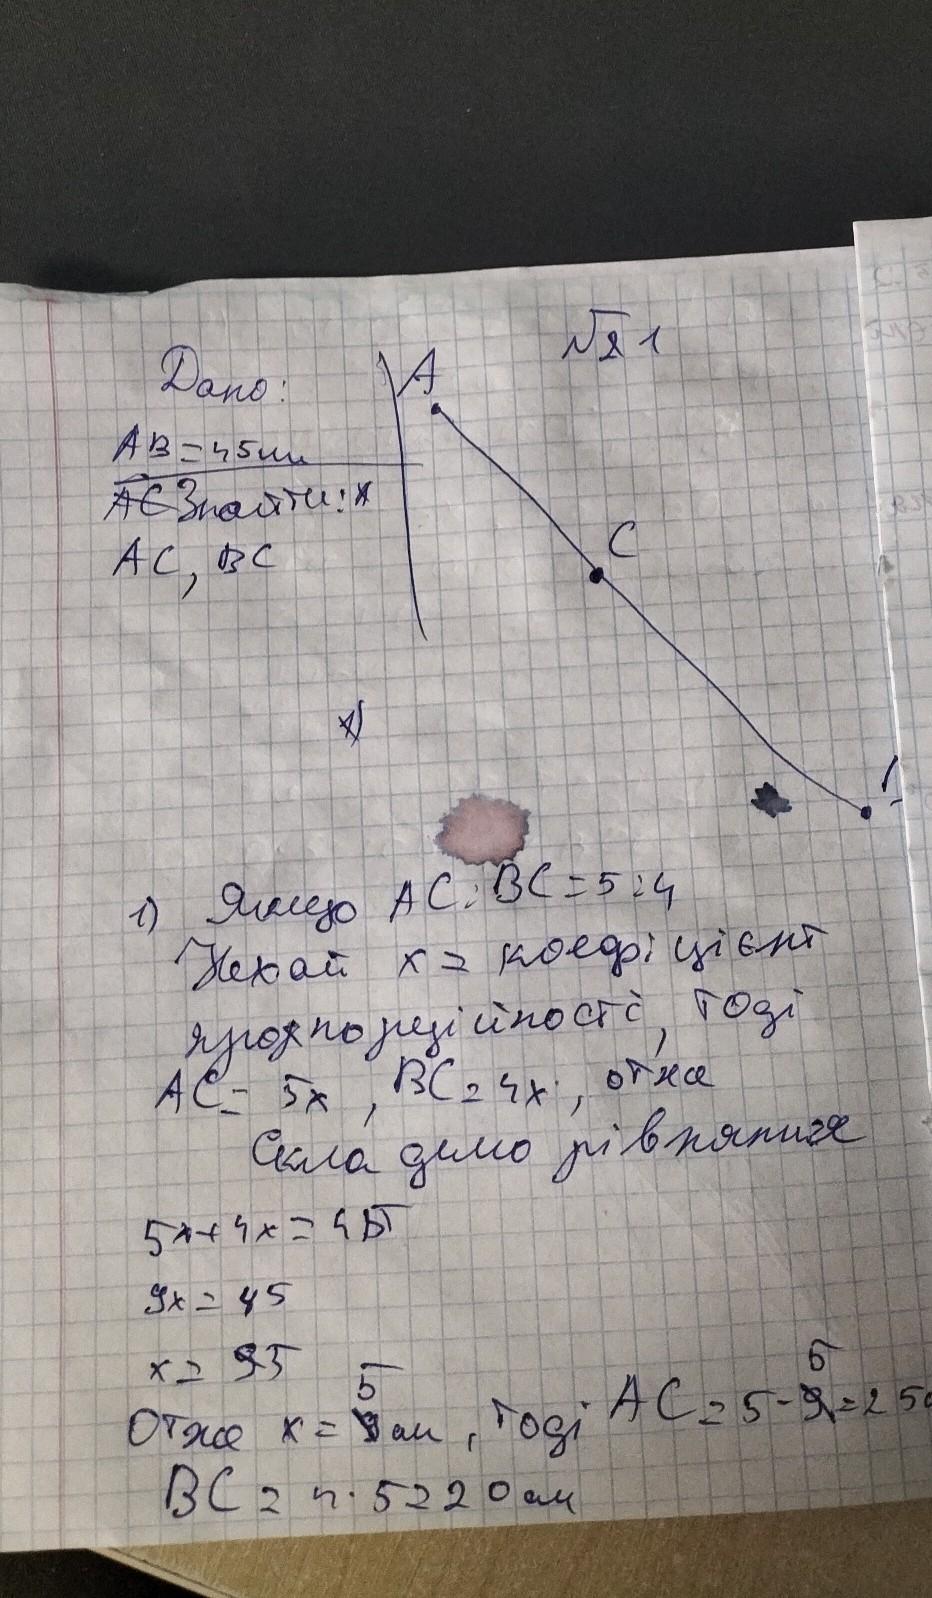 № 1
Дано:
AB = 45см
Знайти:
AC, BC
A
C
1) Якщо AC : BC = 5 : 4
Нехай x = коефіцієнт
пропорційності, тоді
AC = 5x, BC = 4x, отже
Складемо рівняння
5x + 4x = 45
9x = 45
x = 5
Отже x = 5см, тоді AC = 5 · 5 = 25с
BC = 4 · 5 = 20см